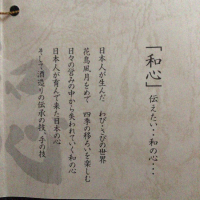 「和心」伝えたい・・和の心・・・
日本人が生んだ　わび・さびの世界
花鳥風月をめで　四季の移ろいを楽しむ
日々の営みの中から失われていく和の心
日本人が育んで来た日本の心
そして、酒造りの伝承の技、手の技